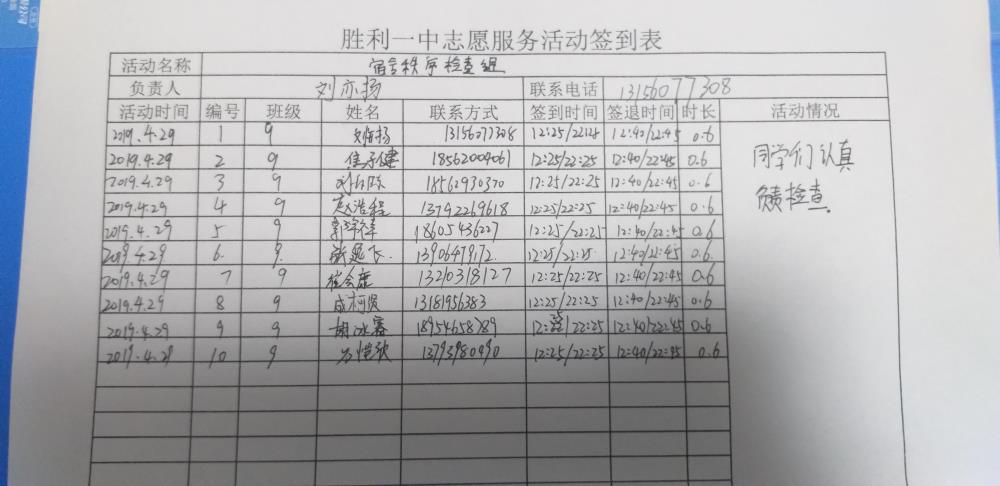 胜利一中志愿服务活动签到表
活动名称 宿舍秩序检查组
负责人 刘亦扬 联系电话 13156077308
活动时间 编号 班级 姓名 联系方式 签到时间 签退时间 时长 活动情况
2019.4.29 1 9 13156077308 12:25/22:25 12:40/22:45 0.6
2019.4.29 2 9 18562004061 12:25/22:25 12:40/22:45 0.6
2019.4.29 3 9 18562930370 12:25/22:25 12:40/22:45 0.6
2019.4.29 4 9 赵浩程 13792269618 12:25/22:25 12:40/22:45 0.6
2019.4.29 5 9 18605436227 12:25/22:25 12:40/22:45 0.6
2019.4.29 6 9 13906479172 12:25/22:25 12:40/22:45 0.6
2019.4.29 7 9 崔会康 13210318127 12:25/22:25 12:40/22:45 0.6
2019.4.29 8 9 成柯贤 13181956383 12:25/22:25 12:40/22:45 0.6
2019.4.29 9 9 18954658789 12:25/22:25 12:40/22:45 0.6
2019.4.29 10 9 13793980990 12:25/22:25 12:40/22:45 0.6
同学们认真
负责检查